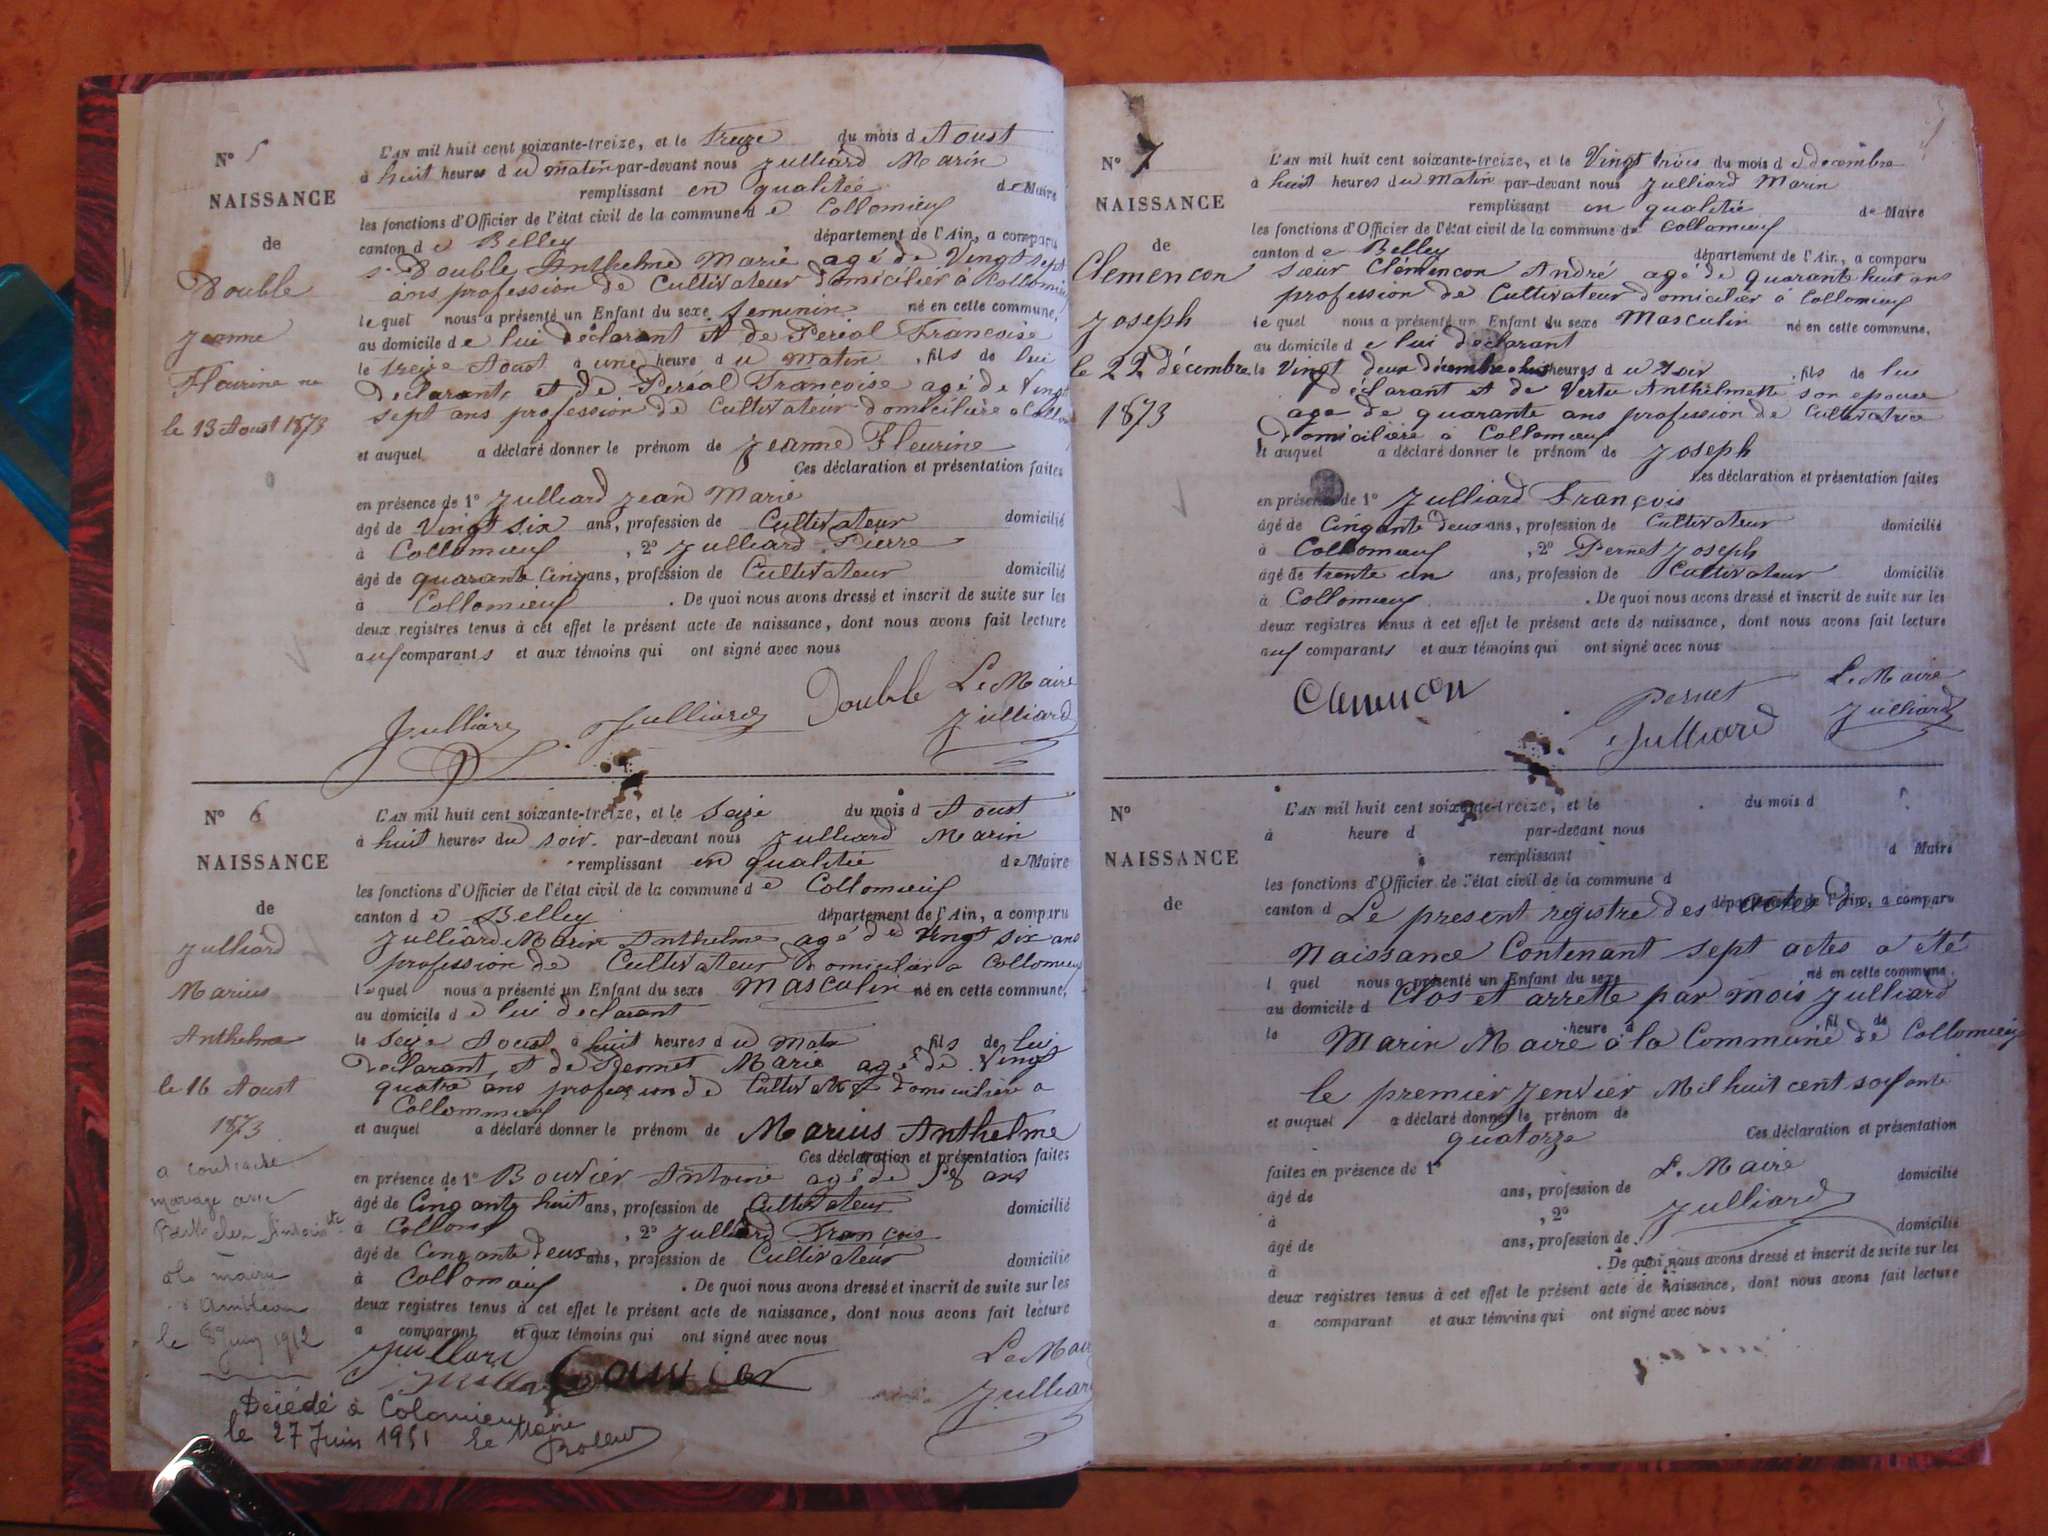 N° 5
NAISSANCE
de
Double
Jeanne
Fleurine né
le 13 Aoust 1873
L'AN mil huit cent soixante-treize, et le treize du mois d'Aoust
à huit heures du matin par-devant nous Julliard Marin
remplissant en qualitée de Maire
les fonctions d'Officier de l'état civil de la commune de Collomieux
canton de Belley département de l'Ain, a comparu
sr Double Anthelme Marie agé de Vingt sept
ans profession de Cultivateur domicilier à Collomieu
le quel nous a présenté un Enfant du sexe feminin né en cette commune,
au domicile de lui déclarant et de Peréal Francoise
le treize Aoust à une heure du matin, fils de lui
declarant, et de Peréal Francoise agé de Vingt
sept ans profession de Cultivateur domicilière a
et auquel a déclaré donner le prénom de Jeanne Fleurine
Ces déclaration et présentation faites
en présence de 1° Julliard Jean Marie
âgé de Vingt six ans, profession de Cultivateur domicilié
à Collomieux, 2° Julliard Pierre
âgé de quarante Cinq ans, profession de Cultivateur domicilié
à Collomieux. De quoi nous avons dressé et inscrit de suite sur les
deux registres tenus à cet effet le présent acte de naissance, dont nous avons fait lecture
aux comparants et aux témoins qui ont signé avec nous
Julliard Julliard Double Le Maire
Julliard
N° 6
NAISSANCE
de
Julliard
Marius
Anthelme
le 16 Aoust
1873
a contracté
mariage avec
à la mairie
d'Ambléon
le 8 Juin 1912
L'AN mil huit cent soixante-treize, et le Seize du mois d'Aoust
à huit heures du soir par-devant nous Julliard Marin
remplissant en qualitée de Maire
les fonctions d'Officier de l'état civil de la commune de Collomieux
canton de Belley département de l'Ain, a comparu
Julliard Marin Anthelme agé de Vingt six ans
profession de Cultivateur domicilier a Collomieux
le quel nous a présenté un Enfant du sexe Masculin né en cette commune,
au domicile de lui declarant
le Seize Aoust à huit heures du matin fils de lui
declarant, et de Pernet Marie agé de Vingt
quatre ans profession de domicilière a
Collommieux
et auquel a déclaré donner le prénom de Marius Anthelme
Ces déclaration et présentation faites
en présence de 1° Bouvier Antoine agé de 58 ans
âgé de Cinq ante huit ans, profession de Cultivateur domicilié
à Collom, 2° Julliard François
âgé de Cinq ante deux ans, profession de Cultivateur domicilié
à Collomieux. De quoi nous avons dressé et inscrit de suite sur les
deux registres tenus à cet effet le présent acte de naissance, dont nous avons fait lecture
a comparant et aux témoins qui ont signé avec nous
Julliard Bouvier Le Maire
Julliard
Décédé à Colomieu
le 27 Juin 1951 Le Maire
N° 7
NAISSANCE
de
Clemencon
Joseph
le 22 décembre
1873
L'AN mil huit cent soixante-treize, et le Vingt trois du mois de decembre
à huit heures du Matin par-devant nous Julliard Marin
remplissant en qualitié de Maire
les fonctions d'Officier de l'état civil de la commune de Collomieux
canton de Belley département de l'Ain, a comparu
sieur Clémencon André agé de quarante huit ans
profession de Cultivateur domicilier à Collomieux
le quel nous a présenté un Enfant du sexe Masculin né en cette commune,
au domicile de lui déclarant
le Vingt deux décembre heures du soir, fils de lui
déclarant et de Vertu Anthelmette son epouse
age de quarante ans profession de Cultivatrice
domicilière a Collomieux
et auquel a déclaré donner le prénom de Joseph
Ces déclaration et présentation faites
en présence de 1° Julliard François
âgé de Cinqante deux ans, profession de Cultivateur domicilié
à Collomieux, 2° Pernet Joseph
âgé de trente un ans, profession de Cultivateur domicilié
à Collomieux. De quoi nous avons dressé et inscrit de suite sur les
deux registres tenus à cet effet le présent acte de naissance, dont nous avons fait lecture
aux comparants et aux témoins qui ont signé avec nous
Clemencon Pernet Le Maire
Julliard Julliard
N°
NAISSANCE
de
L'AN mil huit cent soixante-treize, et le du mois d
à heure d par-devant nous
remplissant d Maire
les fonctions d'Officier de l'état civil de la commune d
canton d département de l'Ain, a comparu
Le present registre des actes de
Naissance Contenant sept actes a été
l quel nous a présenté un Enfant du sexe né en cette commune.
au domicile d Clos et arrette par mois Julliard
le heure d fil de
Marin Maire à la Commune de Collomieux
le premier Jenvier Mil huit cent soixante
et auquel a déclaré donner le prénom de
quatorze Ces déclaration et présentation
faites en présence de 1° Le Maire domicilié
âgé de ans, profession de
à , 2° Julliard
âgé de ans, profession de domicilié
à . De quoi nous avons dressé et inscrit de suite sur les
deux registres tenus à cet effet le présent acte de naissance, dont nous avons fait lecture
a comparant et aux témoins qui ont signé avec nous